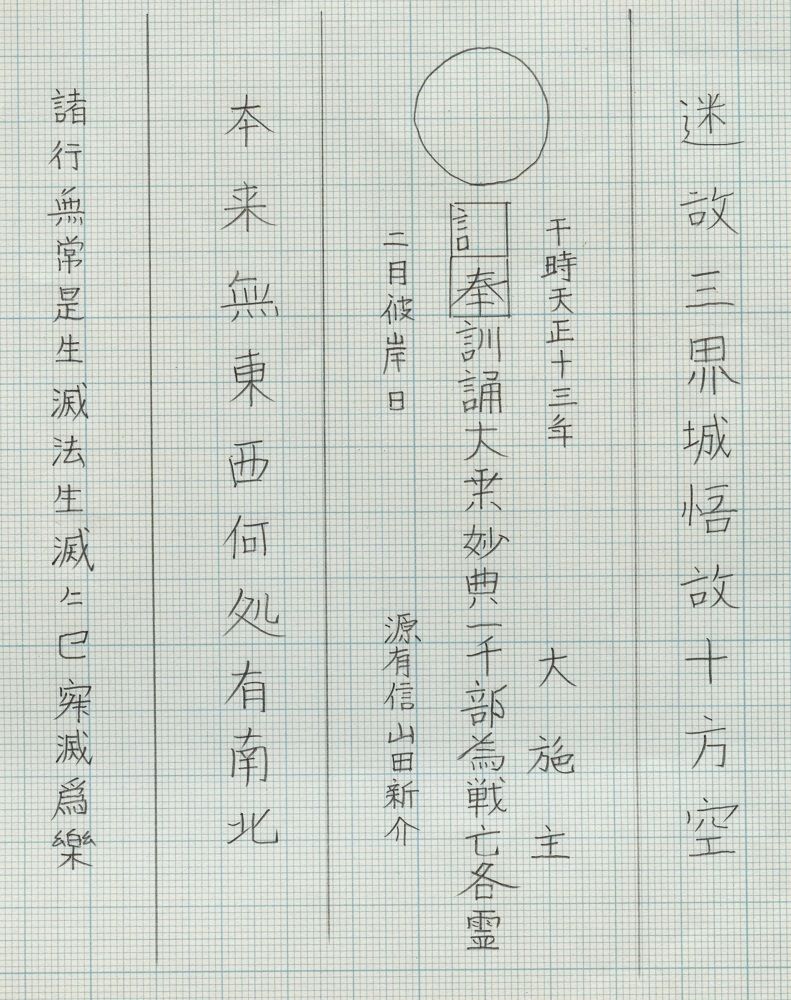 迷故三界城悟故十方空
干時天正十三年
大施主
奉訓誦大乗妙典一千部為戦亡各霊
二月彼岸日
源有信山田新介
本来無東西何処有南北
諸行無常是生滅法生滅仁巳寂滅爲樂